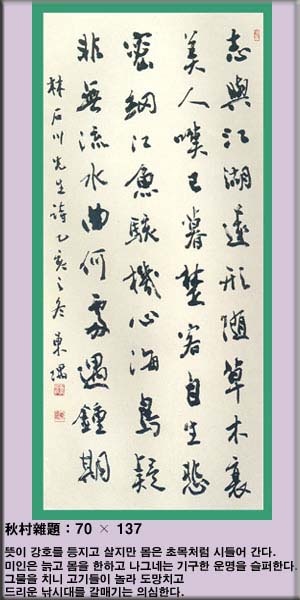 志與江湖遠形隨草木衰
美人嗟已暮楚客自生悲
密網江魚駭機心海鳥疑
非無流水曲何處遇鍾期
林石川先生詩 乙亥之冬 東
秋村雜題 : 70 × 137
뜻이 강호를 등지고 살지만 몸은 초목처럼 시들어 간다.
미인은 늙고 몸을 한하고 나그네는 기구한 운명을 슬퍼한다.
그물을 치니 고기들이 놀라 도망치고
드리운 낚시대를 갈매기는 의심한다.